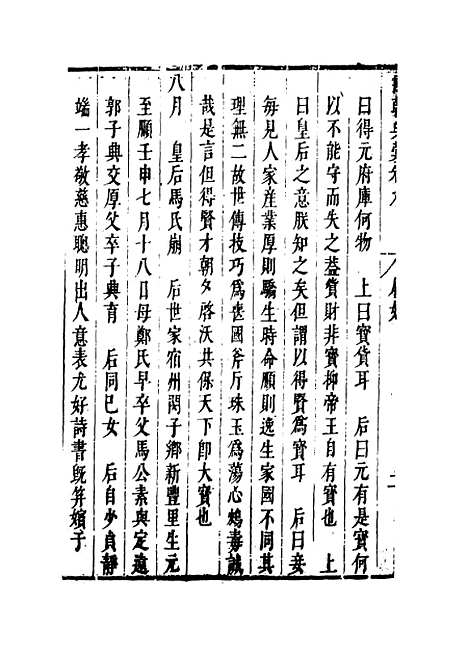 曰得元府庫何物　上曰寶貨耳　后曰元有是寶何
以不能守而失之蓋貨財非寶抑帝王自有寶也　上
曰皇后之意朕知之矣但謂以得賢爲寶耳　后曰妾
每見人家産業厚則驕生時命順則逸生家國不同其
理無二故世傳技巧爲喪國斧斤珠玉爲蕩心鴆毒誠
哉是言但得賢才朝夕啓沃共保天下卽大寶也
八月　皇后馬氏崩　后世家宿州閔子鄉新豐里生元
至順壬申七月十八日母鄭氏早卒父馬公素與定遠
郭子興交厚父卒子興育　后同己女　后自少貞靜
端一孝敬慈惠聰明出人意表尤好詩書旣笄嬪于